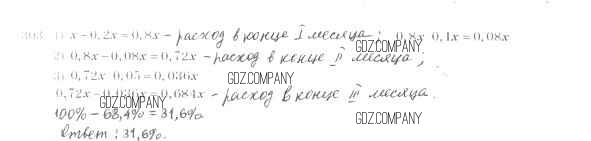 303. 1) x − 0,2x = 0,8x – расход в конце I месяца; 0,8x 0,1x = 0,08x
GDZ.COMPANY
2) 0,8x − 0,08x = 0,72x – расход в конце II месяца;
GDZ.COMPANY
3) 0,72x 0,05 = 0,036x
GDZ.COMPANY
0,72x − 0,036x = 0,684x – расход в конце III месяца.
GDZ.COMPANY
100% − 68,4% = 31,6%
GDZ.COMPANY
Ответ: 31,6%.